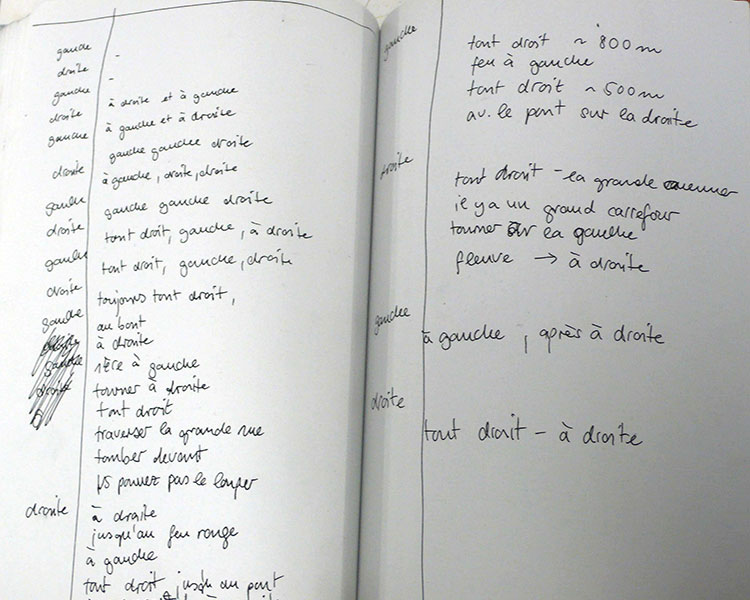 gauche
droite -
gauche -
droite à droite et à gauche
gauche à gauche et à droite
gauche gauche droite
droite à gauche, droite, droite
gauche gauche gauche droite
droite tout droit, gauche, à droite
gauche tout droit, gauche, droite
droite toujours tout droit,
gauche au bout
à droite
gauche 1ère à gauche
droite tourner à droite
tout droit
traverser la grande rue
tomber devant
pouvez pas le louper
droite à droite
jusqu'au feu rouge
à gauche
tout droit jusqu'au pont
gauche
tout droit ~ 800 m
feu à gauche
tout droit ~ 500 m
av. le pont sur la droite
droite
tout droit - la grande
il y a un grand carrefour
tourner sur la gauche
fleuve → à droite
gauche
à gauche, après à droite
droite
tout droit - à droite